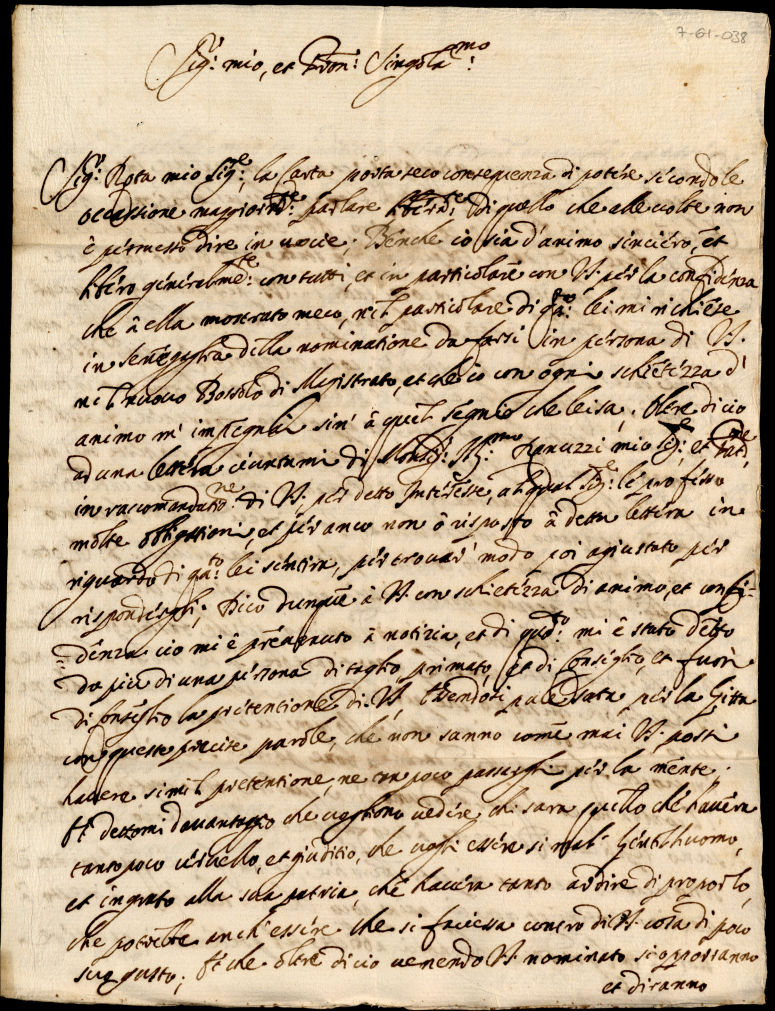 7-61-038
Sig.r mio, et Pron: Singola.mo:
Sig.r Rota mio Sig.re, la Carta porta seco conseguenza di potere secondo le
occassione maggiorm.te: parlare liberam.te di quello che alle volte non
è permesso dire in vocie; Benche io sia d'animo sinciero, et
libero generalme.te: con tutti, et in particolare con V.S. per la confidenza
che à ella mostrato meco, nel particolare di q.to: lei mi richiese
in Senegaglia della nominatione da farsi in persona di V.S.
nel nuovo Bossolo di Magistrato, et che io con ogni schietezza d'
animo m' impegnai sin' à quel segnio che lei sa; oltre di cio
ad una lettera di Mons.r Ill.mo Ranuzzi mio Sig.re, et
in raccomandatio.ne: di V.S. per detto Interesse, al qual Sig.re: le professo
molte obligationi, et per anco non ò risposto à detta lettera in
riguardo di q.to: lei sentira, per trovar' modo poi agiustato per
rispondergli; Dico dunque à V.S. con schietezza di animo, et confi=
=denza cio mi è prevenuto à notizia, et di q.to: mi è stato detto
da piu di una persona di taglio primato, et di Consiglio, et fuori
di Consiglio la pretentione di V.S. essendosi palesata per la Citta
con queste precise parole, che non sanno come mai V.S. possi
havere simil pretentione, ne tan poco passargli per la mente.
Et dettomi davantaggio che vogliono vedere chi sara quello che havera
tanto poco cervello, et giuditio, che vogli essere si mal' Gentilhuomo,
et ingrato alla sua patria, che havera tanto ardire di proporlo,
che potrebbe anch'essere che si faciessa contro di V.S. cosa di poco
suo gusto; Et che oltre di cio venendo V.S. nominato si opporranno
et diranno